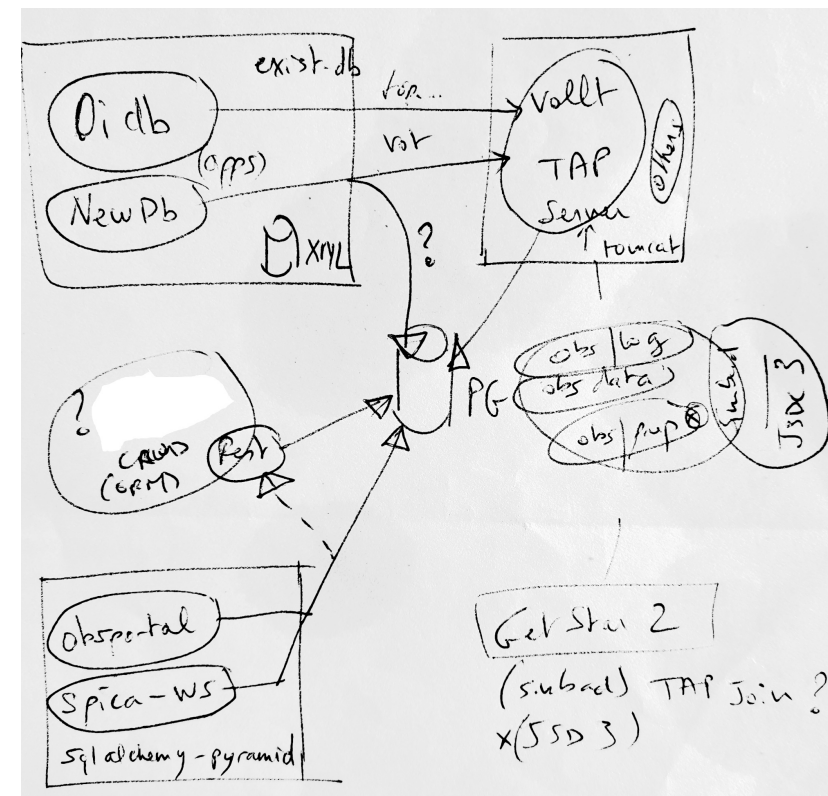 exist-db
Oidb
(apps)
NewDb
XML
vot
Vollt
TAP
Server
others
↑
tomcat
?
PG
obs log
obs data
obs prep
Simbad
JSDC 3
?
(ORM)
Rest
obsportal
Spica-WS
sqlalchemy-pyramid
GetStar 2
(simbad) TAP Join ?